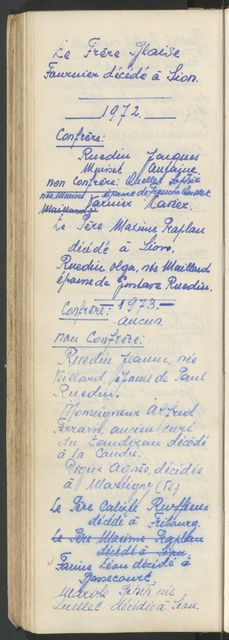 Le Frère Blaise
Fournier décédé à Sion.
1972.
Confrère:
Ruedin Jacques
Muriset Antoine
non Confrère: Quellet Sophie
née Muriset épouse de François Quellet
Garnier
Le Père Maxime Raplan
décédé à Sion.
Ruedin Olga, née Maillard
épouse de Gustave Ruedin.
Confrère: 1973.
aucun
non Confrère:
Ruedin Jeanne, née
Veillard, épouse de Paul
Ruedin.
Monseigneur Alfred
ancien curé
du Landeron décédé
à la Coudre.
Didier Agnès, décédée
à Martigny (Vs.)
Le Père Calixte Ruffieux
décédé à Fribourg.
Le Père Maxime Raplan
décédé à Sion.
Farine Léon décédé à
née
Quellet décédée à